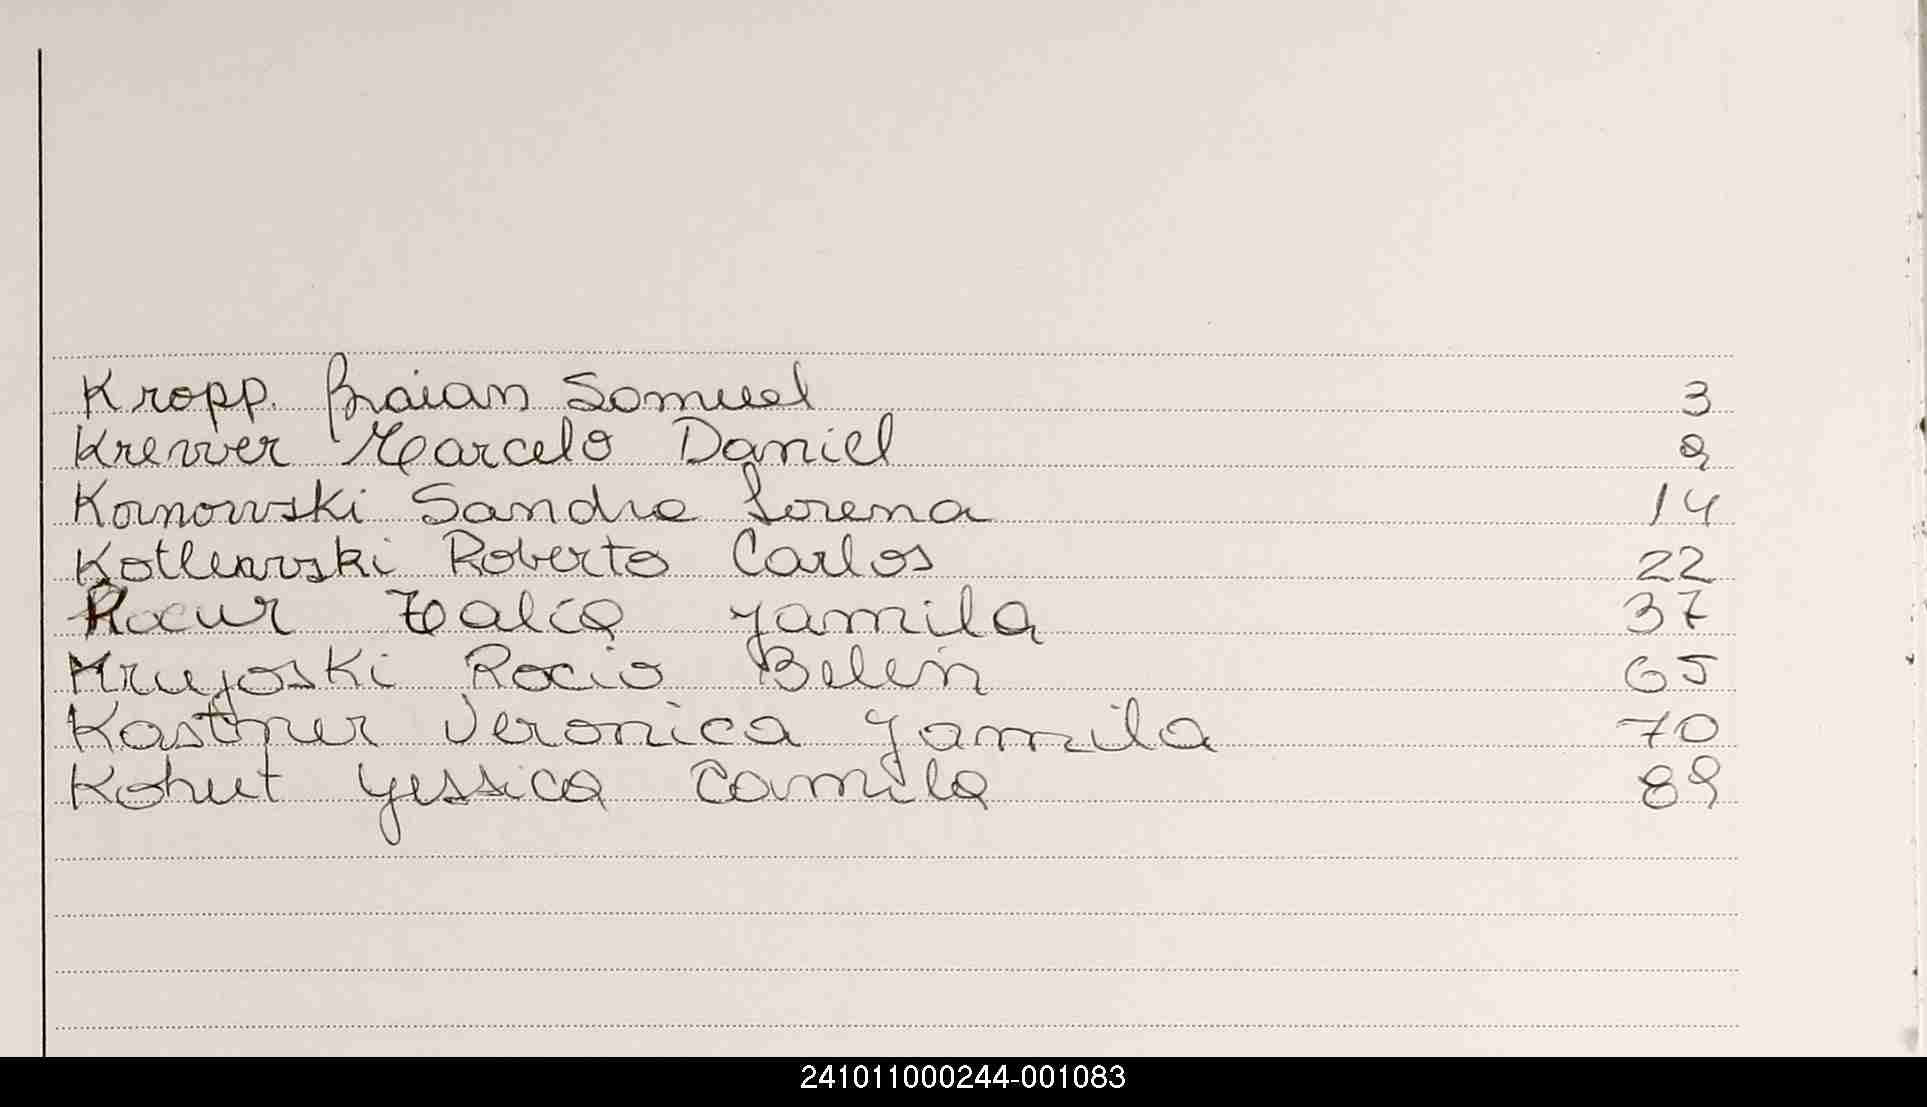 Kropp. Braian Samuel 3
Krewer Marcelo Daniel 9
Kornowski Sandra Lorena 14
Kotlewski Roberto Carlos 22
Talia Yamila 37
Kruyoski Rocio Belen 65
Kastner Veronica Yamila 70
Kohut Yessica Camila 89
241011000244-001083